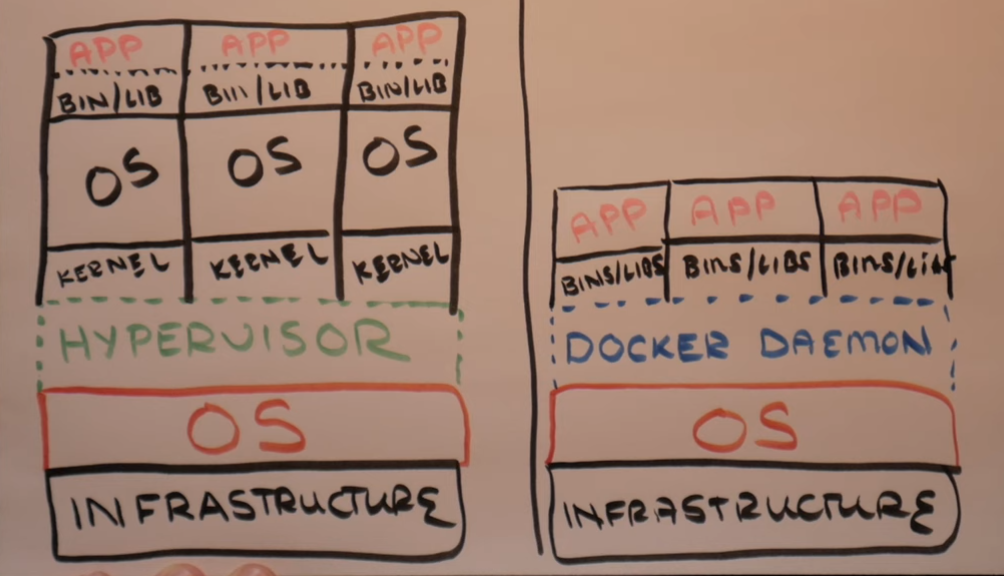 APP APP APP
BIN/LIB BIN/LIB BIN/LIB
OS OS OS
KERNEL KERNEL KERNEL
HYPERVISOR
OS
INFRASTRUCTURE
APP APP APP
BINS/LIBS BINS/LIBS BINS/LIBS
DOCKER DAEMON
OS
INFRASTRUCTURE